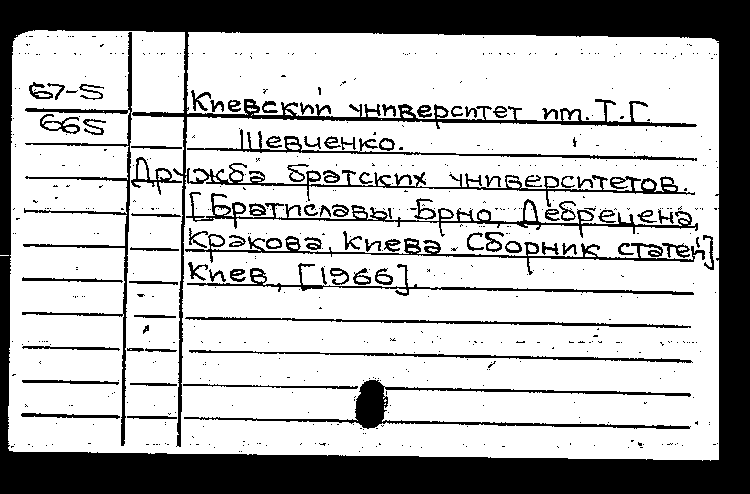 67-5
665
Киевский университет им. Т.Г.
Шевченко.
Дружба братских университетов.
[Братиславы, Брно, Дебрецена,
Кракова, Киева. Сборник статей].
Киев, [1966].